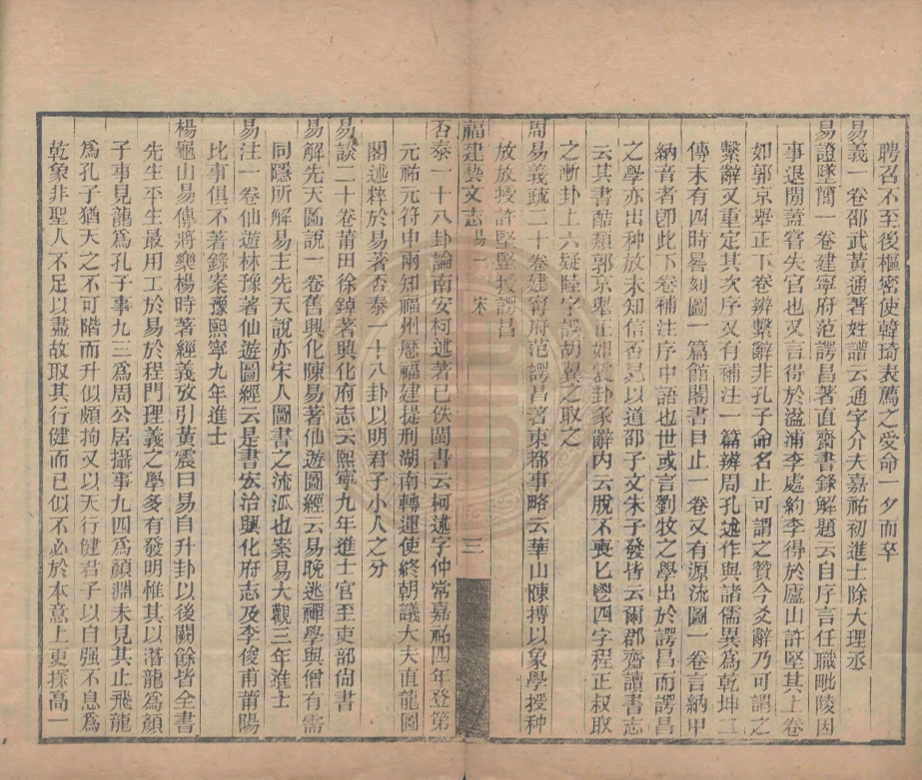 聘召不至後樞密使韓琦表薦之受命一夕而卒
易義一卷邵武黃通著姓譜云通字介夫嘉祐初進士除大理丞
易證墜簡一卷建寧府范諤昌著直齋書錄解題云自序言任職毗陵因
事退閒蓋嘗失官也又言得於湓浦李處約李得於廬山許堅其上卷
如郭京舉正下卷辨繫辭非孔子命名止可謂之贊今爻辭乃可謂之
繫辭又重定其次序又有補注一篇辨周孔述作與諸儒異爲乾坤二
傳末有四時晷刻圖一篇館閣書目止一卷又有源流圖一卷言納甲
納音者卽此下卷補注序中語也世或言劉牧之學出於諤昌而諤昌
之學亦出种放未知信否晁以道邵子文朱子發皆云爾郡齋讀書志
云其書酷類郭京舉正如震卦彖辭内云脫不喪匕鬯四字程正叔取
之漸卦上六疑陸字誤胡翼之取之
周易義疏二十卷建甯府范諤昌著東都事略云華山陳摶以象學授种
放放授許堅堅授諤昌
福建藝文志 易一 宋 三
否泰一十八卦論南安柯述著已佚閩書云柯述字仲常嘉祐四年登第
元祐元符中兩知福州歷福建提刑湖南轉運使終朝議大夫直龍圖
閣述粹於易著否泰一十八卦以明君子小人之分
易談二十卷莆田徐鐸著興化府志云熙寧九年進士官至吏部尙書
易解先天圖說一卷舊興化陳易著仙遊圖經云易晚逃禪學與僧有需
同隱所解易主先天說亦宋人圖書之流派也案易大觀三年進士
易注一卷仙遊林豫著仙遊圖經云是書宏治興化府志及李俊甫莆陽
比事俱不著錄案豫熙寧九年進士
楊龜山易傳將樂楊時著經義攷引黃震曰易自升卦以後闕餘皆全書
先生平生最用工於易於程門理義之學多有發明惟其以潛龍爲顏
子事見龍爲孔子事九三爲周公居攝事九四爲顏淵未見其止飛龍
爲孔子猶天之不可階而升似頗拘又以天行健君子以自强不息爲
乾象非聖人不足以盡故取其行健而已似不必於本意上更探高一